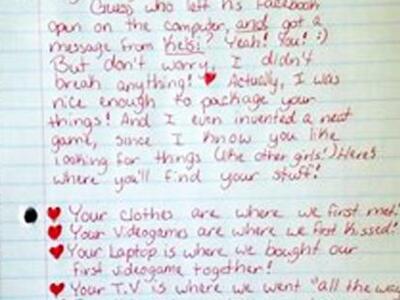 Guess who left his Facebook
open on the computer, and got a
message from Kelsi? Yeah! You! :)
But don't worry, I didn't
break anything! Actually, I was
nice enough to package your
things! And I even invented a neat
game, since I know you like
looking for things (like other girls!) Here's
where you'll find your stuff!
Your clothes are where we first met!
Your Videogames are where we first kissed!
Your Laptop is where we bought our
first videogame together!
Your T.V. is where we went "all the way